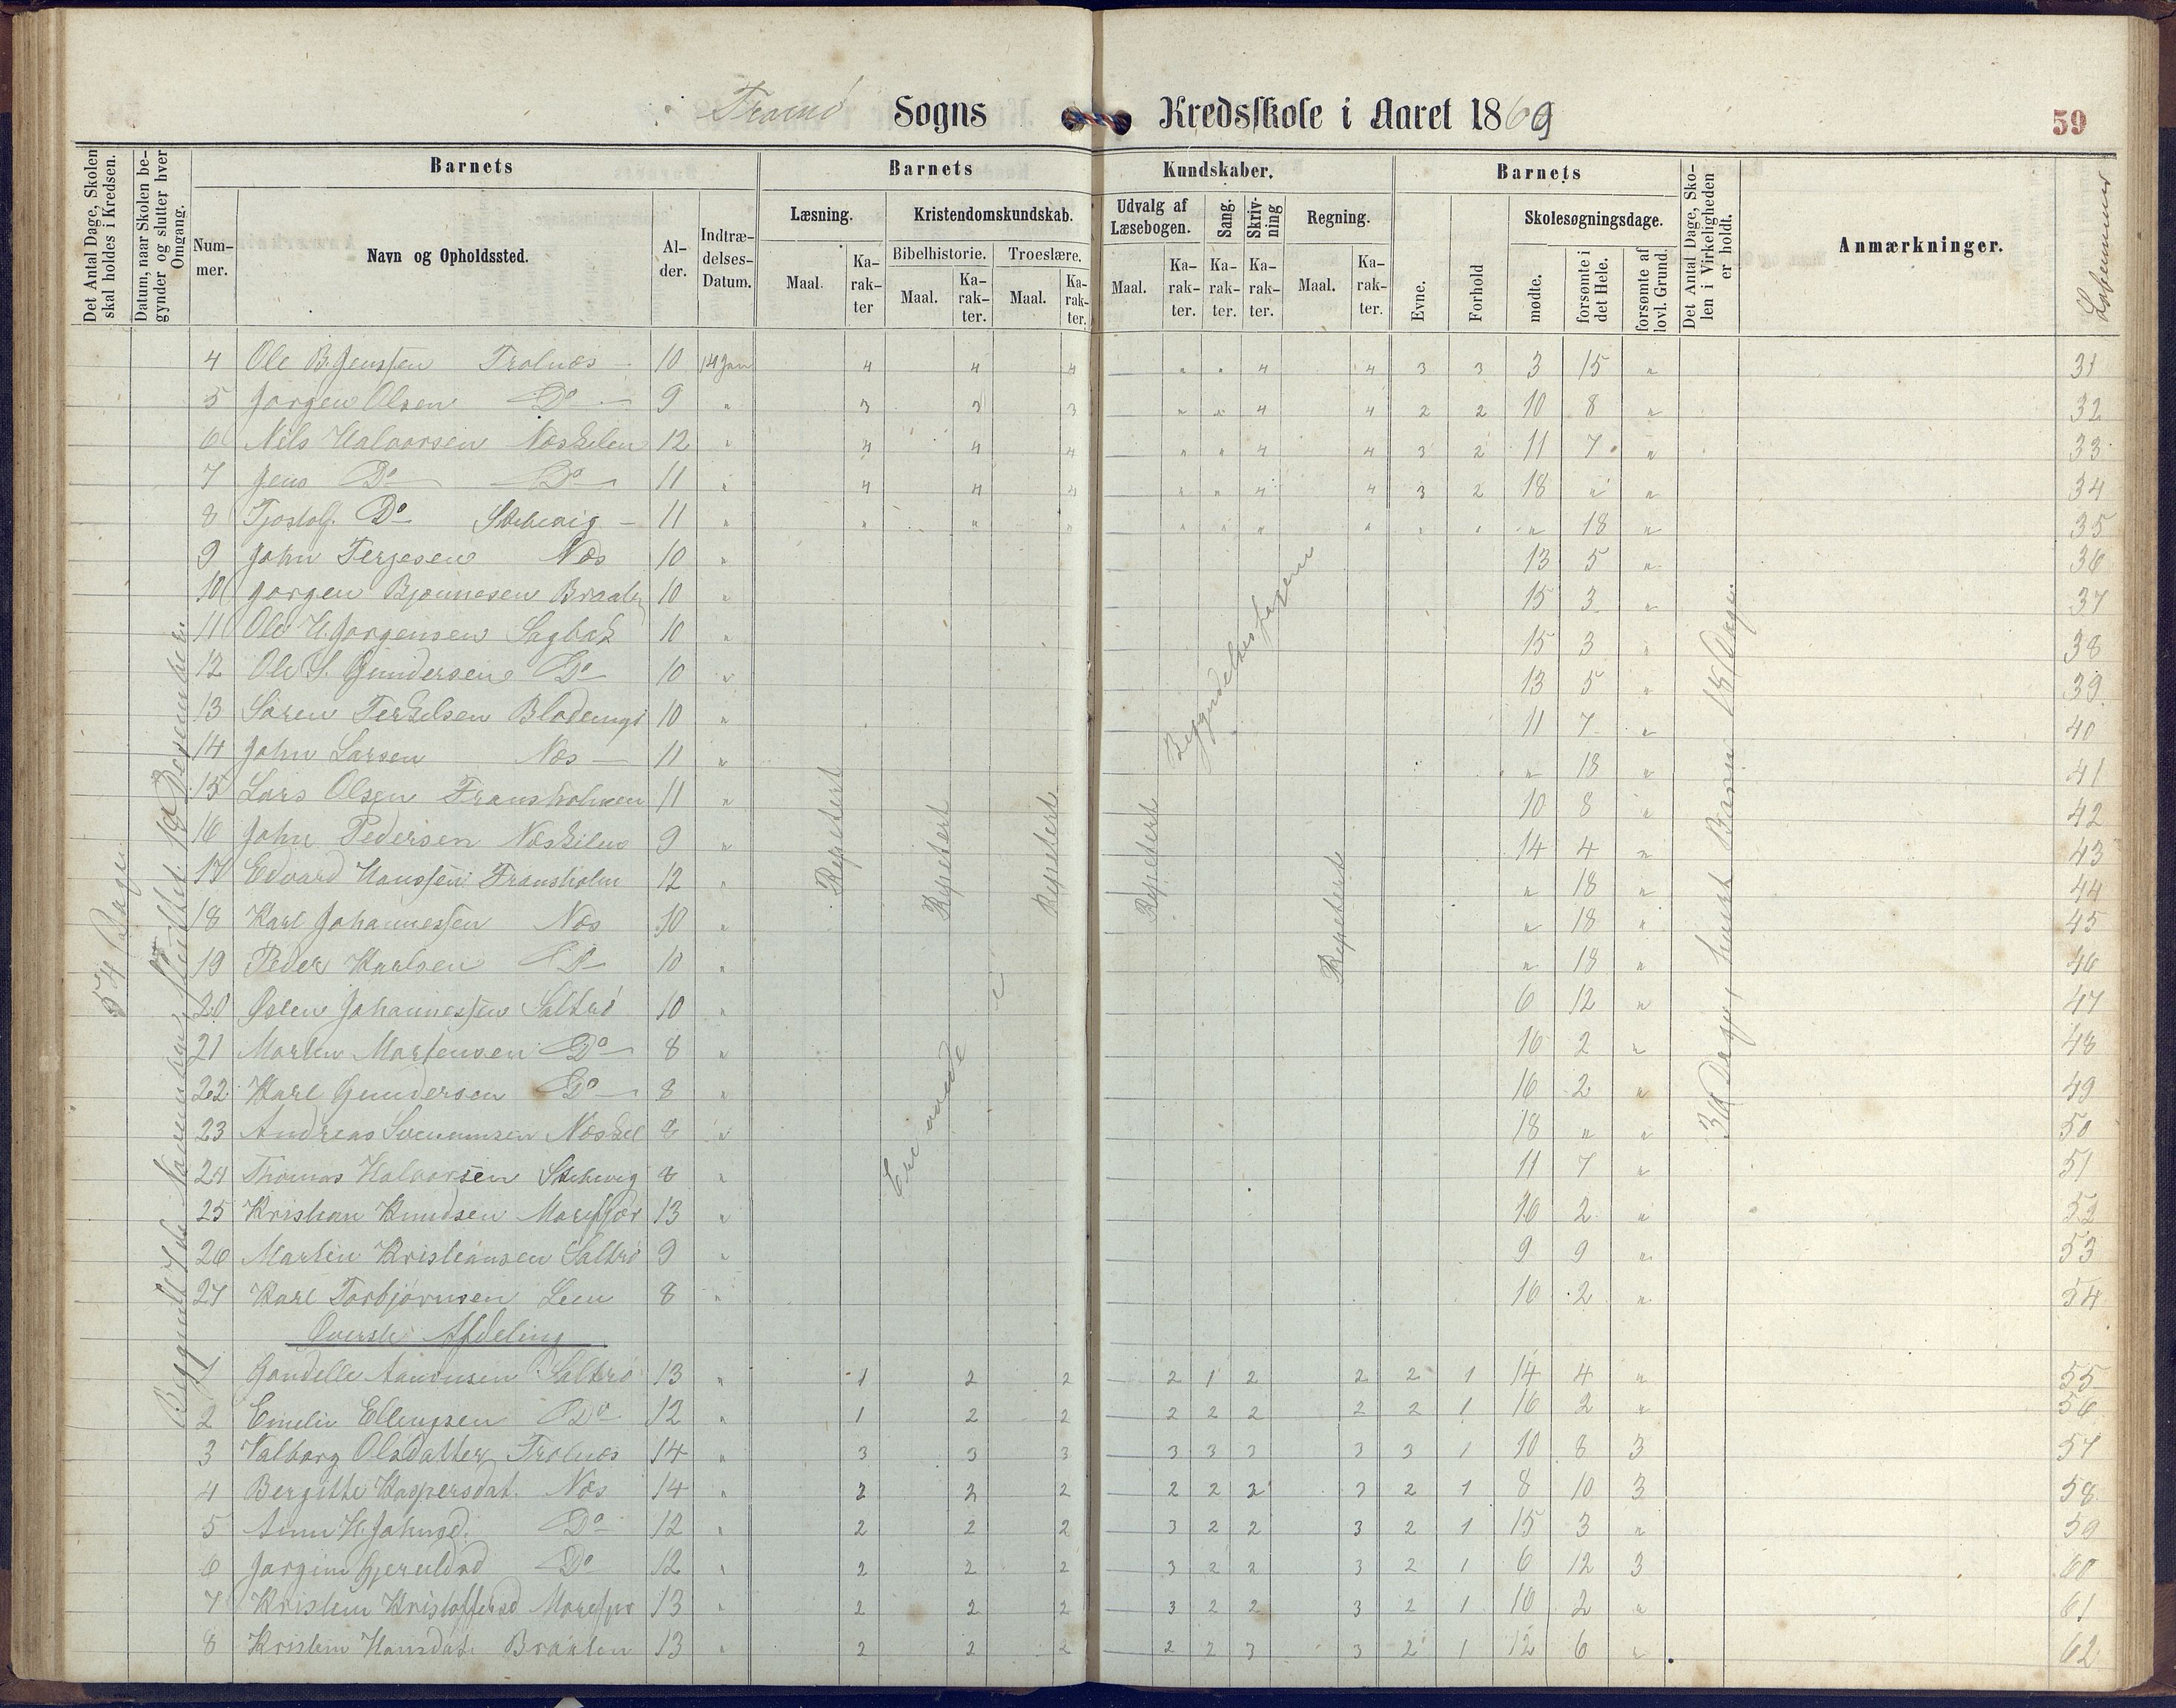 Tromø Sogns Kredsskole i Aaret 1869 59
Det Antal Dage, Skolen skal holdes i Kredsen.
Datum, naar Skolen begynder og slutter hver Omgang.
Barnets Barnets Kundskaber. Barnets
Nummer. Navn og Opholdssted. Alder. Indtrædelses-Datum.
Læsning. Kristendomskundskab. Udvalg af Læsebogen. Sang. Skrivning Regning.
Bibelhistorie. Troeslære.
Maal. Karakter Maal. Karakter. Maal. Karakter. Maal. Karakter. Karakter. Karakter. Maal. Karakter.
Evne. Forhold Skolesøgningsdage. mødte. forsømte i det Hele. forsømte af lovl. Grund.
Det Antal Dage, Skolen i Virkeligheden er holdt.
Anmærkninger.
Løbenummer
4 Ole B. Jenssen Trolnæs 10 14 Jan 4 4 4 " " 4 4 3 3 3 15 " 31
5 Jørgen Olsen Do 9 " 3 3 3 " " 4 4 2 2 10 8 " 32
6 Nils Halvorsen Næskilen 12 " 4 4 4 " " 4 4 3 2 11 7 " 33
7 Jens Do Do 11 " 4 4 4 " " 4 4 3 2 18 " " 34
8 Tjostolf Do 11 " " " " " " " " " " " 18 " 35
9 John Terjesen Næs 10 " 13 5 " 36
10 Jørgen Bjønnesen 10 " 15 3 " 37
11 Ole H. Jørgensen Sagbæk 10 " 15 3 " 38
12 Ole S. Gundersen Do 10 " 13 5 " 39
13 Søren Terkelsen 10 " 11 7 " 40
14 John Larsen Næs 11 " " 18 " 41
15 Lars Olsen Fransholmen 11 " 10 8 " 42
16 John Pedersen Næskilen 9 " 14 4 " 43
17 Edvard Hanssen Fransholm 12 " " 18 " 44
18 Karl Johannessen Næs 10 " " 18 " 45
19 Peder Karlsen Do 10 " " 18 " 46
20 Johannessen Saltrø 10 " 6 12 " 47
21 Morten Mortensen Do 8 " 16 2 " 48
22 Karl Gundersen Do 8 " 16 2 " 49
23 Andreas Næskil 8 " 18 " " 50
24 Thomas Halvorsen 8 " 11 7 " 51
25 Kristian Knudsen Marefjær 13 " 16 2 " 52
26 Martin Kristiansen Saltrø 9 " 9 9 " 53
27 Karl Torbjørnsen 8 " 16 2 " 54
Øverste Afdeling
1 Saltrø 13 " 1 2 2 2 1 2 2 2 1 14 4 " 55
2 Emelie Ellingsen Do 12 " 1 2 2 2 2 2 2 2 1 16 2 " 56
3 Valborg Olsdatter Trolnæs 14 " 3 3 3 3 3 3 3 3 1 10 8 3 57
4 Bergitte Kaspersdat. Næs 14 " 2 2 2 2 2 2 3 2 1 8 10 3 58
5 Ann H. Johnsd. Do 12 " 2 2 2 3 2 2 3 2 1 15 3 " 59
6 Jørgine Do 12 " 2 2 2 3 2 2 3 2 1 6 12 3 60
7 Kristine Kristoffersd Marefjær 13 " 2 2 2 3 2 2 3 2 1 16 2 " 61
8 Kristine Hansdat. 13 " 2 2 2 2 2 3 3 2 1 12 6 " 62
54 Dage
Begyndte 7de sluttet 18 December
Repetert
Repetert
Repetert
Repetert
Repetert
Begyndelsesfagene
36 Dage, hvert Barn 18 Dage.